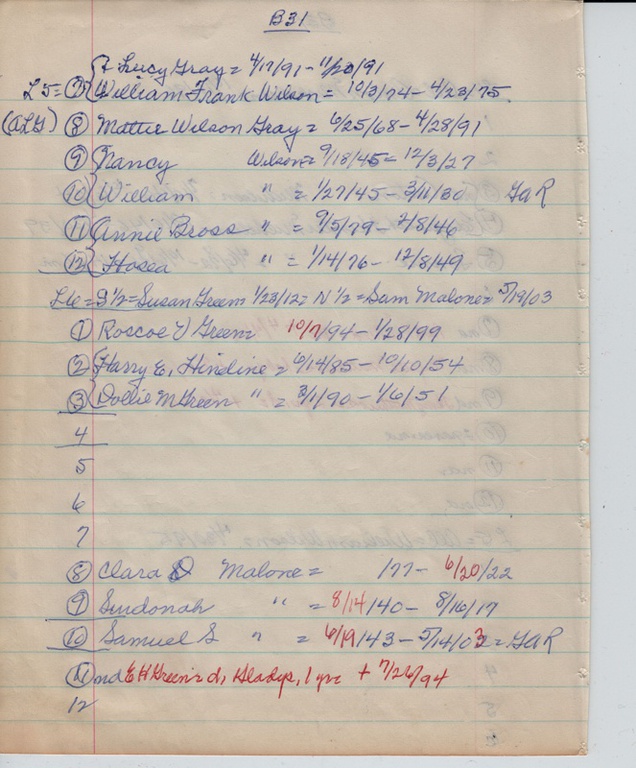 B31
+ Lucy Gray = 4/17/91 - 11/20/91
L5 = ⑦ William Frank Wilson = 10/3/74 - 4/23/75
(ALG) ⑧ Mattie Wilson Gray = 6/25/68 - 4/28/91
⑨ Nancy Wilson = 9/18/45 = 12/3/27
⑩ William " = 1/27/45 - 3/11/30 GAR
⑪ Annie Bross " = 9/5/79 - 2/8/46
⑫ Hosea " = 1/14/76 - 12/8/49
L6 = S 1/2 = Susan Green 1/23/12 = N 1/2 = Sam Malone = 5/19/03
① Roscoe V Green 10/7/94 - 1/28/99
② Harry E. Hindline = 6/14/85 - 10/10/54
③ Dollie M Green " = 3/1/90 - 1/6/51
4
5
6
7
⑧ Clara D Malone = /77 - 6/20/22
⑨ Surdonah " = 8/14/40 - 8/16/17
⑩ Samuel S " = 6/19/43 - 5/14/03 = GAR
⑪ nd E H Green = d, Gladys, 1 yr + 7/26/94
12